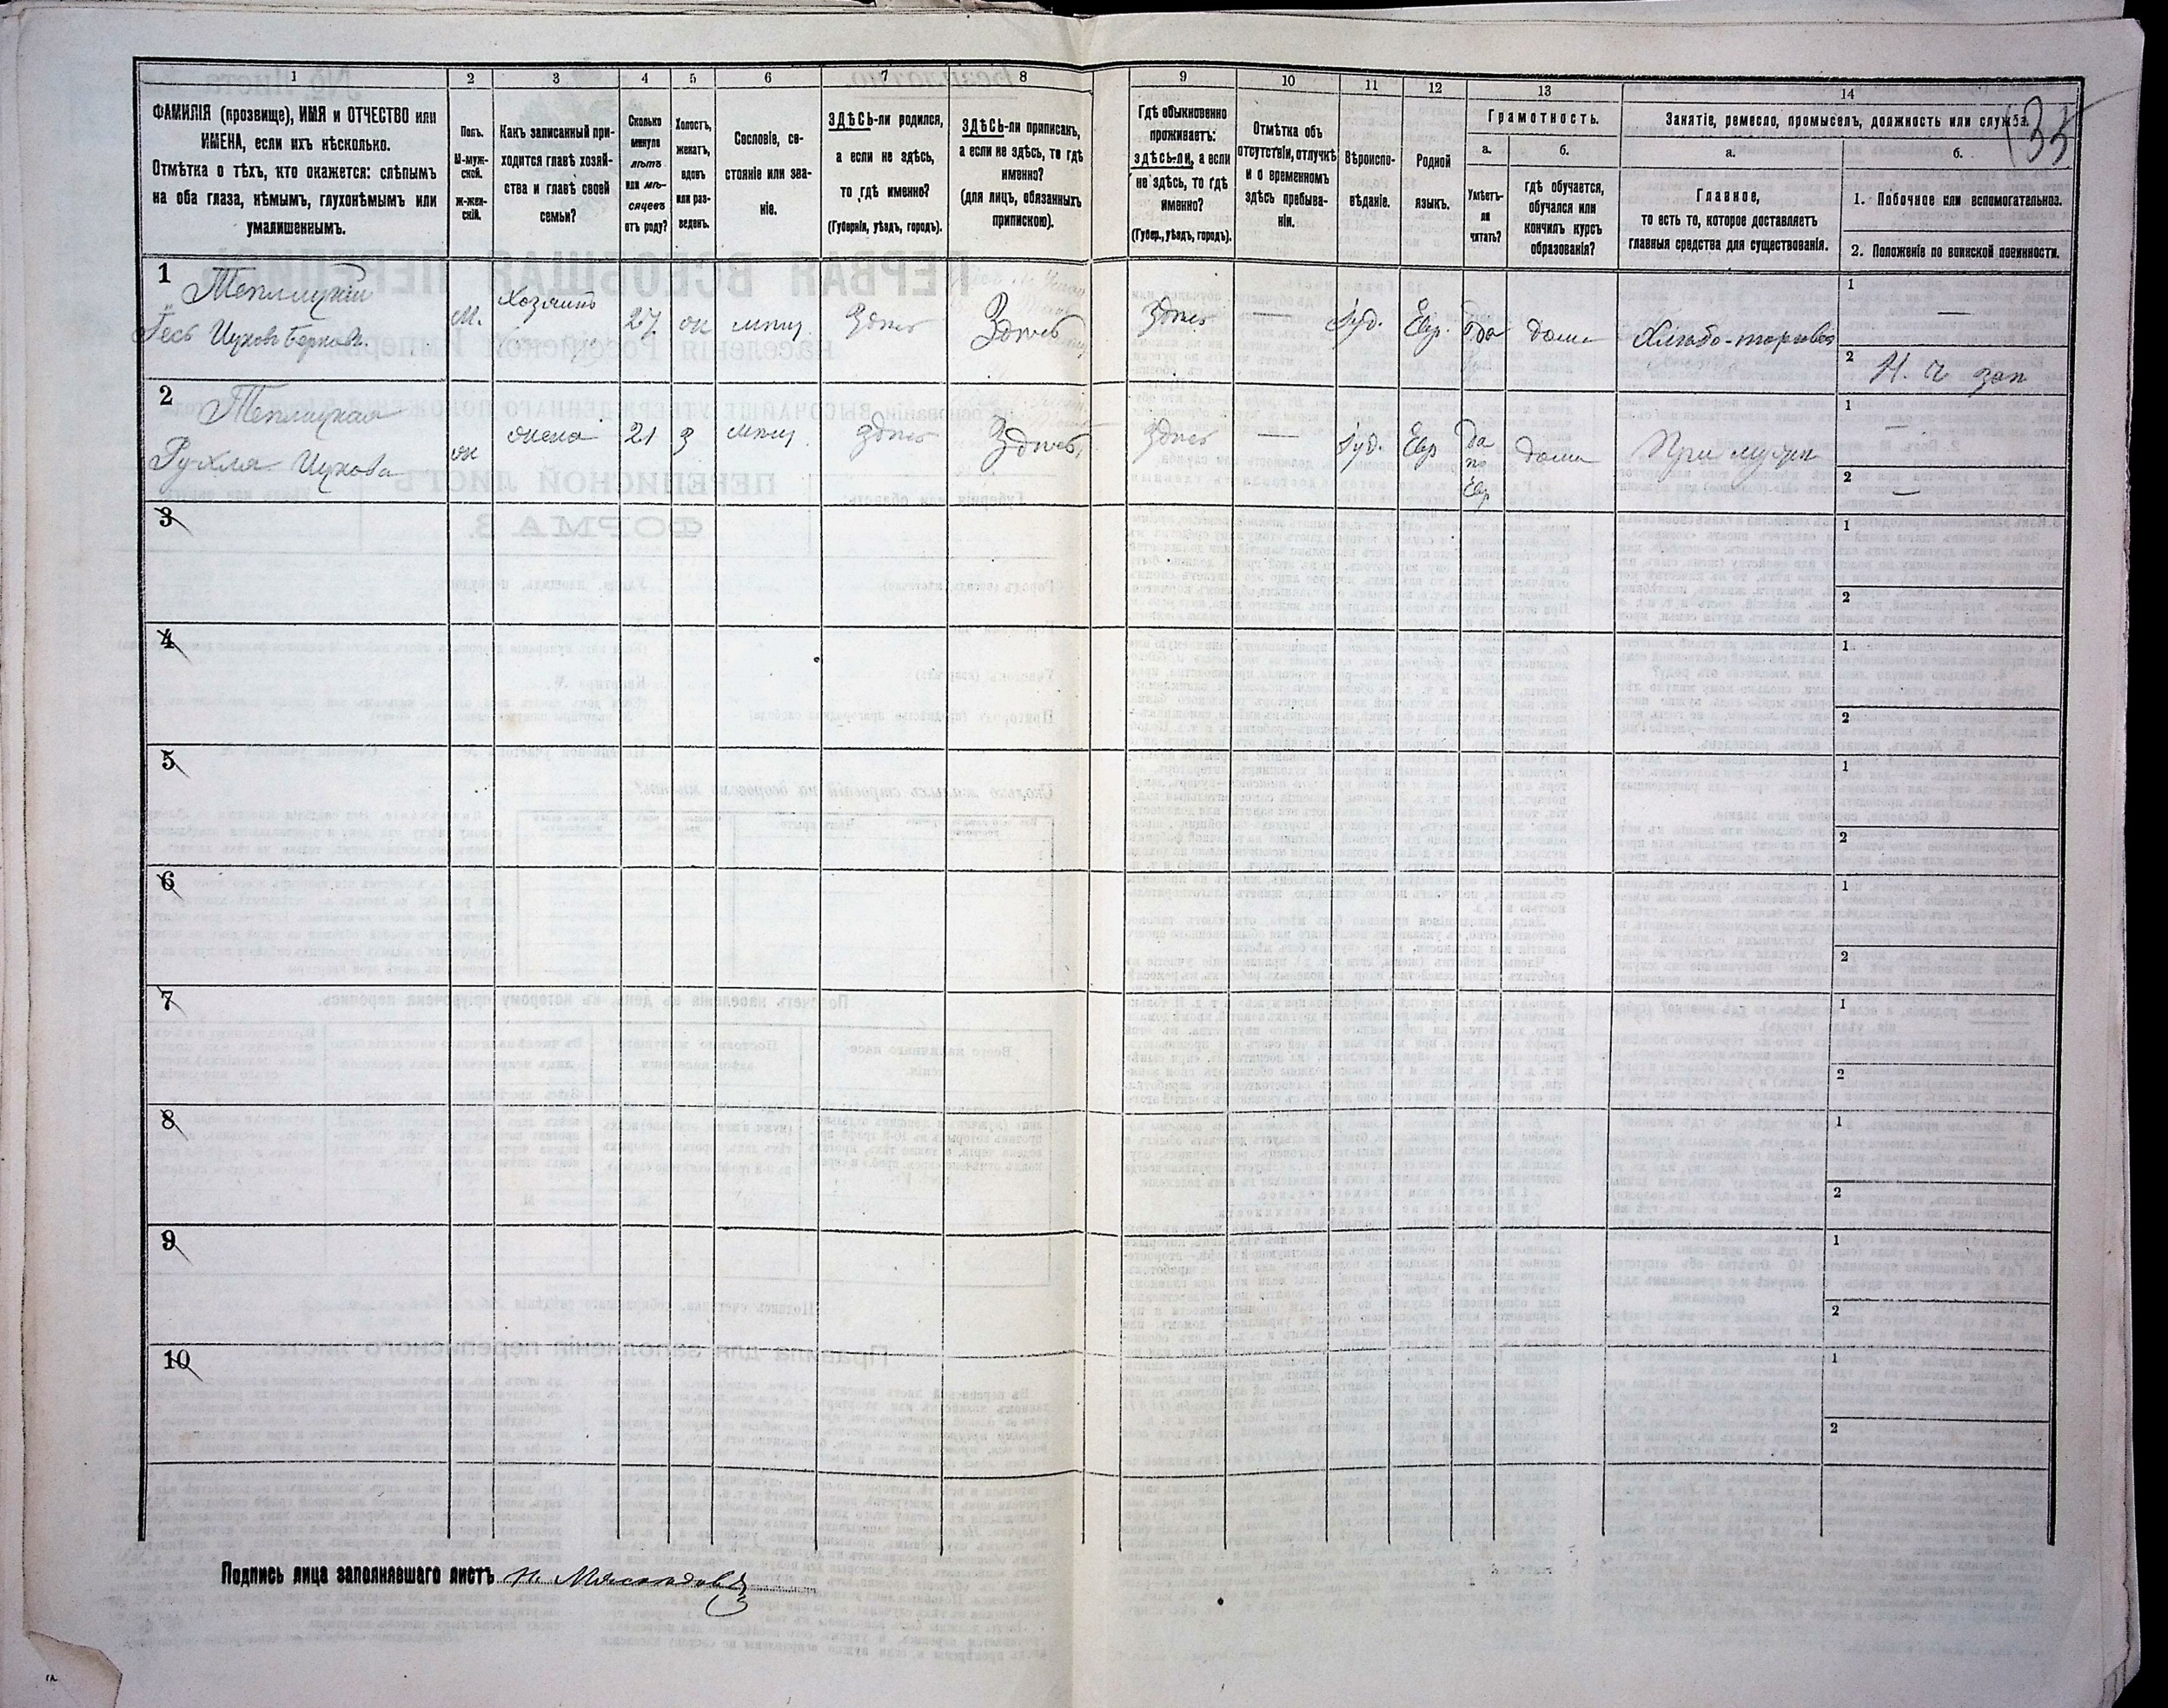 1 2 3 4 5 6 7 8 9 10 11 12 13 14
ФАМИЛІЯ (прозвище), ИМЯ и ОТЧЕСТВО или
ИМЕНА, если ихъ нѣсколько.
Отмѣтка о тѣхъ, кто окажется: слѣпымъ
на оба глаза, нѣмымъ, глухонѣмымъ или
умалишеннымъ.
Полъ.
М-муж-
ской.
Ж-жен-
скій.
Какъ записанный при-
ходится главѣ хозяй-
ства и главѣ своей
семьи?
Сколько
минуло
лѣтъ
или мѣ-
сяцевъ
отъ роду?
Холостъ,
женатъ,
вдовъ
или раз-
веденъ.
Сословіе, со-
стояніе или зва-
ніе.
ЗДѢСЬ-ли родился,
а если не здѣсь,
то гдѣ именно?
(Губернія, уѣздъ, городъ).
ЗДѢСЬ-ли приписанъ,
а если не здѣсь, то гдѣ
именно?
(для лицъ, обязанныхъ
припискою).
Гдѣ обыкновенно
проживаетъ:
здѣсь-ли, а если
не здѣсь, то гдѣ
именно?
(Губер., уѣздъ, городъ).
Отмѣтка объ
отсутствіи, отлучкѣ
и о временномъ
здѣсь пребыва-
ніи.
Вѣроиспо-
вѣданіе.
Родной
языкъ.
Грамотность.
а.
Умѣетъ-
ли
читать?
б.
гдѣ обучается,
обучался или
кончилъ курсъ
образованія?
Занятіе, ремесло, промыселъ, должность или служба.
35
а.
Главное,
то есть то, которое доставляетъ
главныя средства для существованія.
б.
1. Побочное или вспомогательное.
2. Положеніе по воинской повинности.
1 Теплицкій
Ицковъ Берковъ.
М. Хозяинъ 27 ж мѣщ. Здѣсь Здѣсь Здѣсь — Іуд. Евр. да дома Хлѣбо-торговля
1 —
2 Н. ч зап
2 Теплицкая
Рухля Ицкова
ж жена 21 з мѣщ. Здѣсь Здѣсь Здѣсь — Іуд. Евр да
по
Евр
дома При мужѣ
1 —
2 —
3
1
2
4
1
2
5
1
2
6
1
2
7
1
2
8
1
2
9
1
2
10
1
2
Подпись лица заполнявшаго листъ